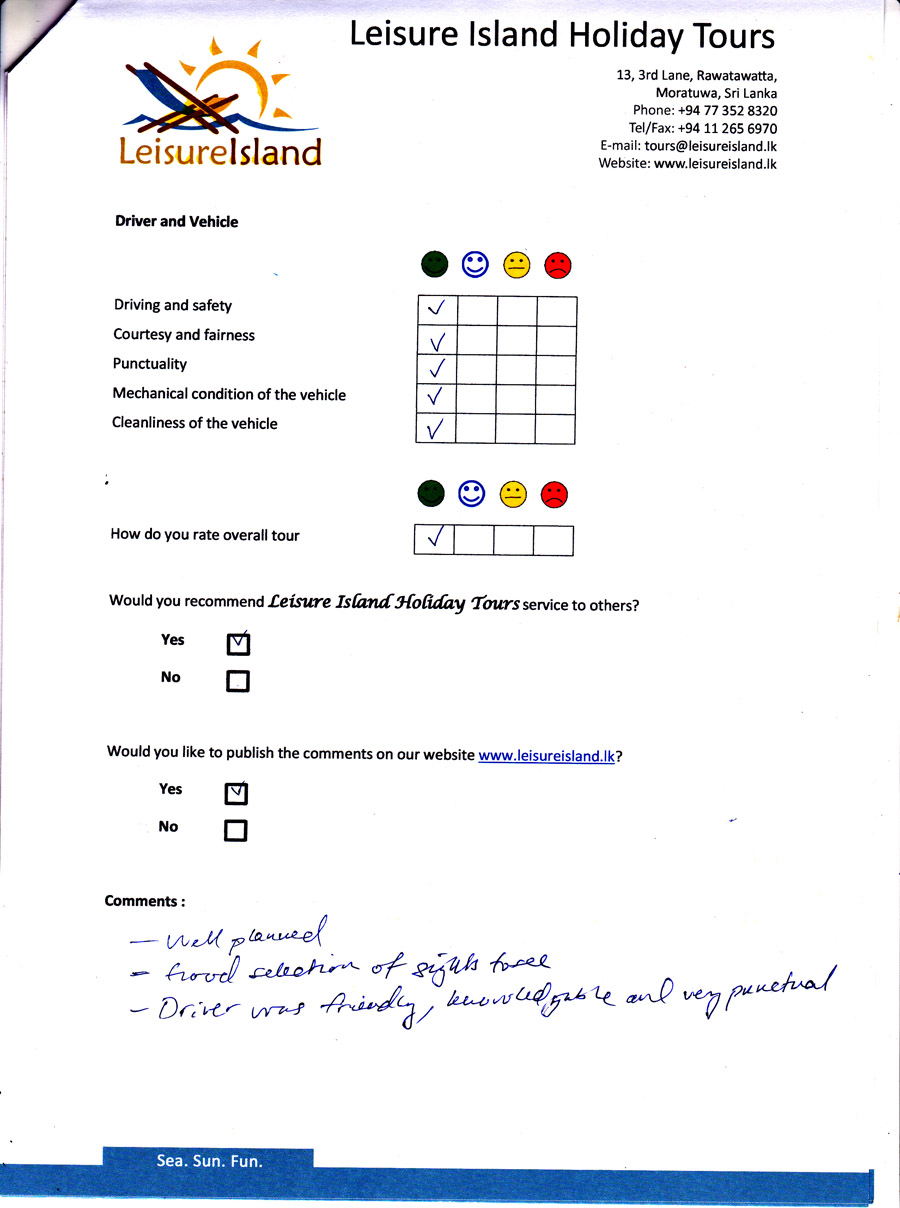 Leisure Island Holiday Tours
13, 3rd Lane, Rawatawatta,
Moratuwa, Sri Lanka
Phone: +94 77 352 8320
Tel/Fax: +94 11 265 6970
E-mail: tours@leisureisland.lk
Website: www.leisureisland.lk
LeisureIsland
Driver and Vehicle
Driving and safety
Courtesy and fairness
Punctuality
Mechanical condition of the vehicle
Cleanliness of the vehicle
How do you rate overall tour
Would you recommend Leisure Island Holiday Tours service to others?
Yes
No
Would you like to publish the comments on our website www.leisureisland.lk?
Yes
No
Comments :
- Well planned
- Good selection of sights to see
- Driver was friendly, knowledgable and very punctual
Sea. Sun. Fun.